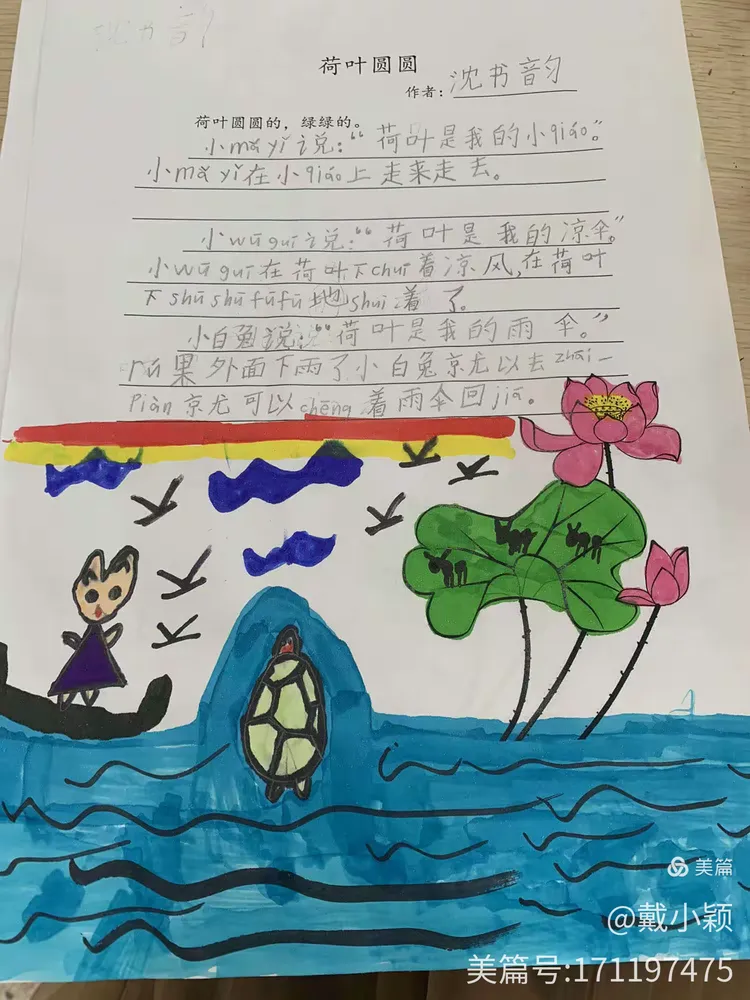 沈书音
荷叶圆圆
作者：沈书韵
荷叶圆圆的，绿绿的。
小mǎ yǐ说：“荷叶是我的小qiáo。”
小mǎ yǐ在小qiáo上走来走去。
小wū guī说：“荷叶是我的凉伞。”
小wū guī在荷叶下chuī着凉风，在荷叶
下shū shū fú fú地shuì着了。
小白兔说：“荷叶是我的雨伞。”
rú果外面下雨了小白兔京尤以去zhāi一
piàn京尤可以chēng着雨伞回jiā。
美篇
@戴小颖
美篇号:171197475